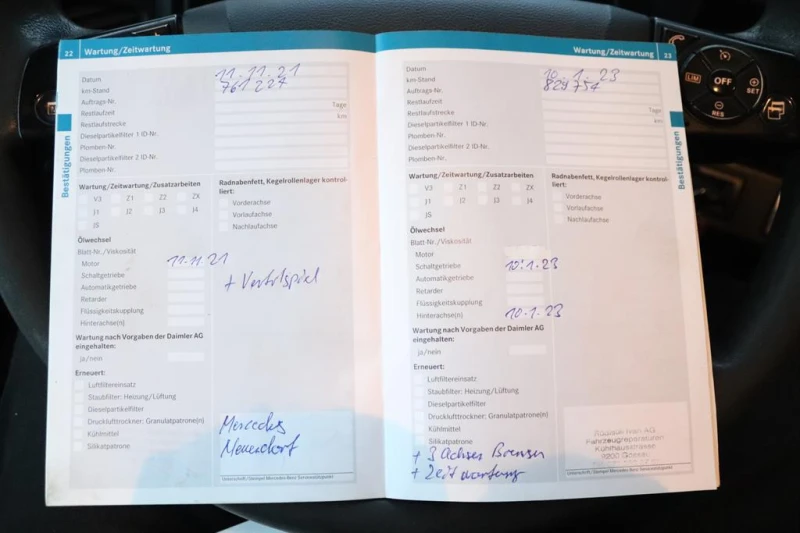 22 Wartung/Zeitwartung
Bestätigungen
Datum 11.11.21
km-Stand 761227
Auftrags-Nr.
Restlaufzeit Tage
Restlaufstrecke km
Dieselpartikelfilter 1 ID-Nr.
Plomben-Nr.
Dieselpartikelfilter 2 ID-Nr.
Plomben-Nr.
Wartung/Zeitwartung/Zusatzarbeiten
V3 Z1 Z2 ZX
J1 J2 J3 J4
JS
Radnabenfett, Kegelrollenlager kontrol-
liert:
Vorderachse
Vorlaufachse
Nachlaufachse
Ölwechsel
Blatt-Nr./Viskosität
Motor 11.11.21
Schaltgetriebe
Automatikgetriebe
Retarder
Flüssigkeitskupplung
Hinterachse(n)
+ Ventilspiel
Wartung nach Vorgaben der Daimler AG
eingehalten:
ja/nein
Erneuert:
Luftfiltereinsatz
Staubfilter: Heizung/Lüftung
Dieselpartikelfilter
Drucklufttrockner: Granulatpatrone(n)
Kühlmittel
Silikatpatrone
Mercedes
Neuendorf
Unterschrift/Stempel Mercedes-Benz Servicestützpunkt
Wartung/Zeitwartung 23
Bestätigungen
Datum 10.1.23
km-Stand 829754
Auftrags-Nr.
Restlaufzeit Tage
Restlaufstrecke km
Dieselpartikelfilter 1 ID-Nr.
Plomben-Nr.
Dieselpartikelfilter 2 ID-Nr.
Plomben-Nr.
Wartung/Zeitwartung/Zusatzarbeiten
V3 Z1 Z2 ZX
J1 J2 J3 J4
JS
Radnabenfett, Kegelrollenlager kontrol-
liert:
Vorderachse
Vorlaufachse
Nachlaufachse
Ölwechsel
Blatt-Nr./Viskosität
Motor
Schaltgetriebe 10.1.23
Automatikgetriebe
Retarder
Flüssigkeitskupplung
Hinterachse(n) 10.1.23
Wartung nach Vorgaben der Daimler AG
eingehalten:
ja/nein
Erneuert:
Luftfiltereinsatz
Staubfilter: Heizung/Lüftung
Dieselpartikelfilter
Drucklufttrockner: Granulatpatrone(n)
Kühlmittel
Silikatpatrone
+ 3 Achsen Bremsen
+ Zeitwartung
AG
Fahrzeugreparaturen
9200 Gossau
Unterschrift/Stempel Mercedes-Benz Servicestützpunkt
LIM
OFF
SET
RES